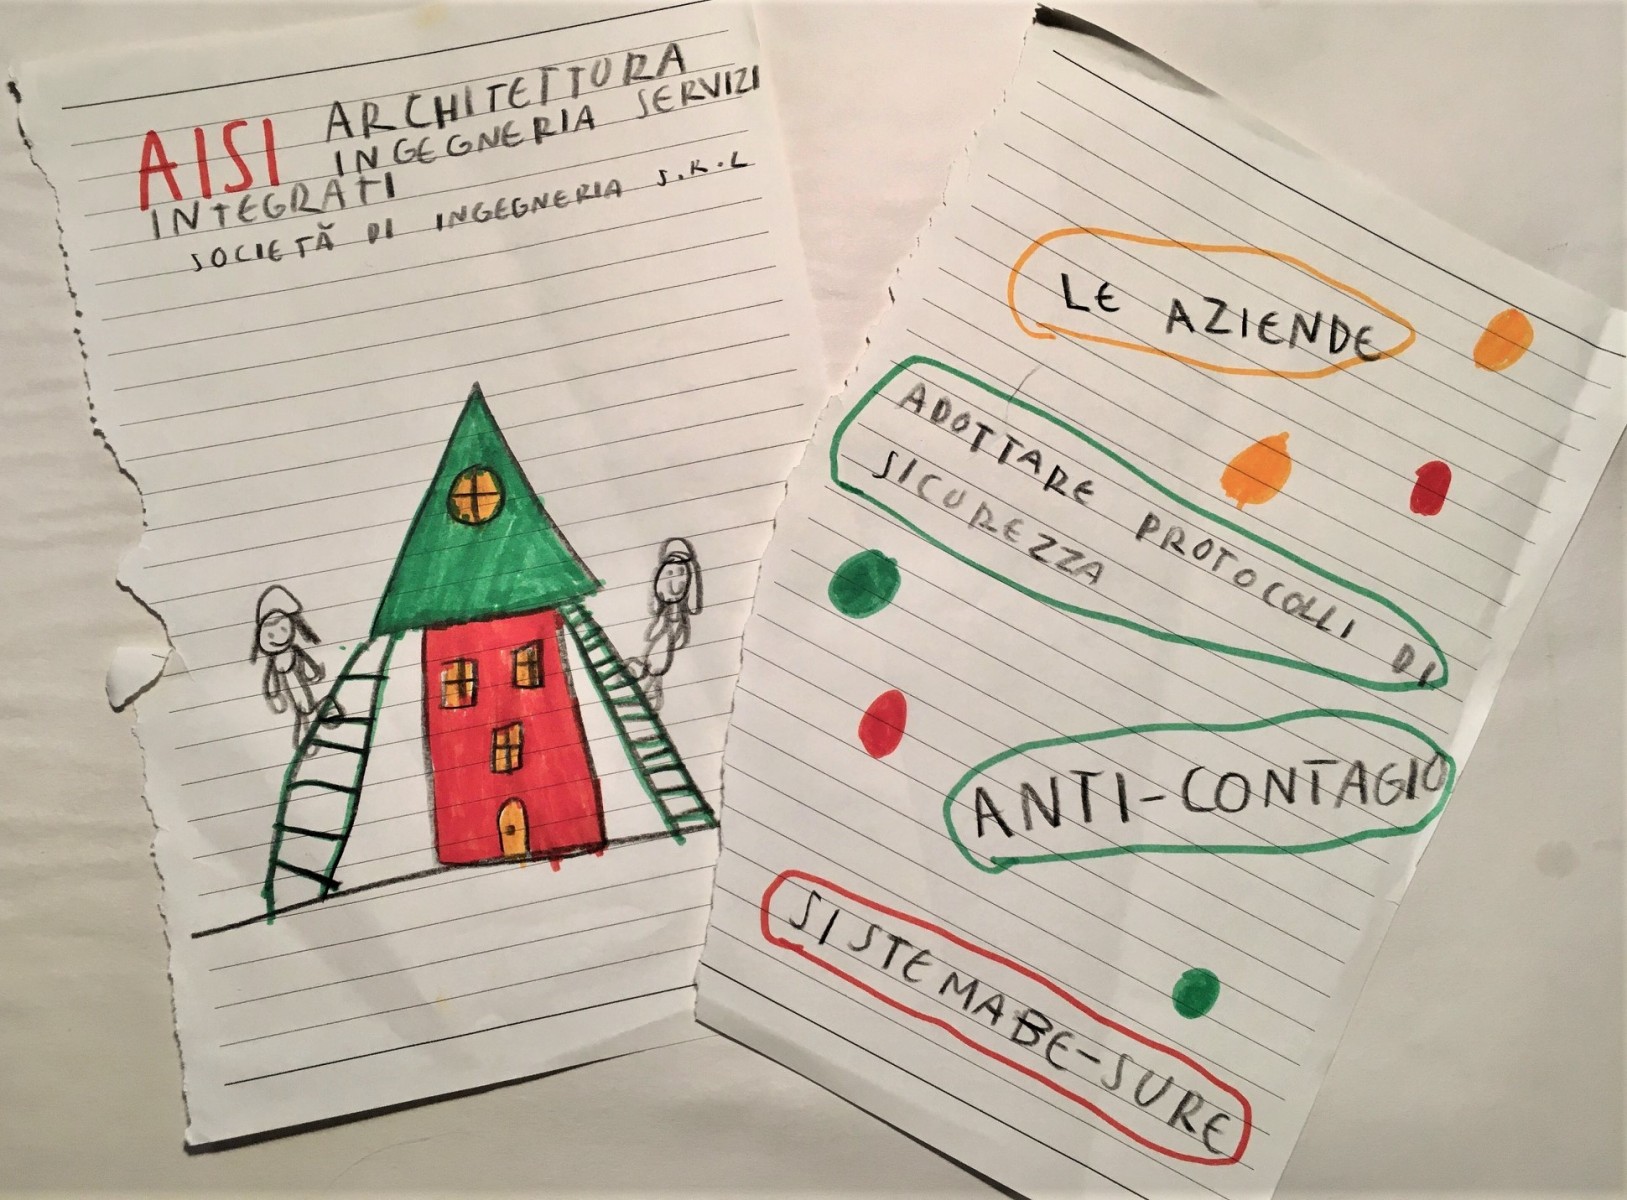 AISI ARCHITETTURA
INGEGNERIA SERVIZI
INTEGRATI
SOCIETĂ DI INGEGNERIA S.R.L
LE AZIENDE
ADOTTARE PROTOCOLLI DI
SICUREZZA
ANTI-CONTAGIO
SISTEMABE-SURE